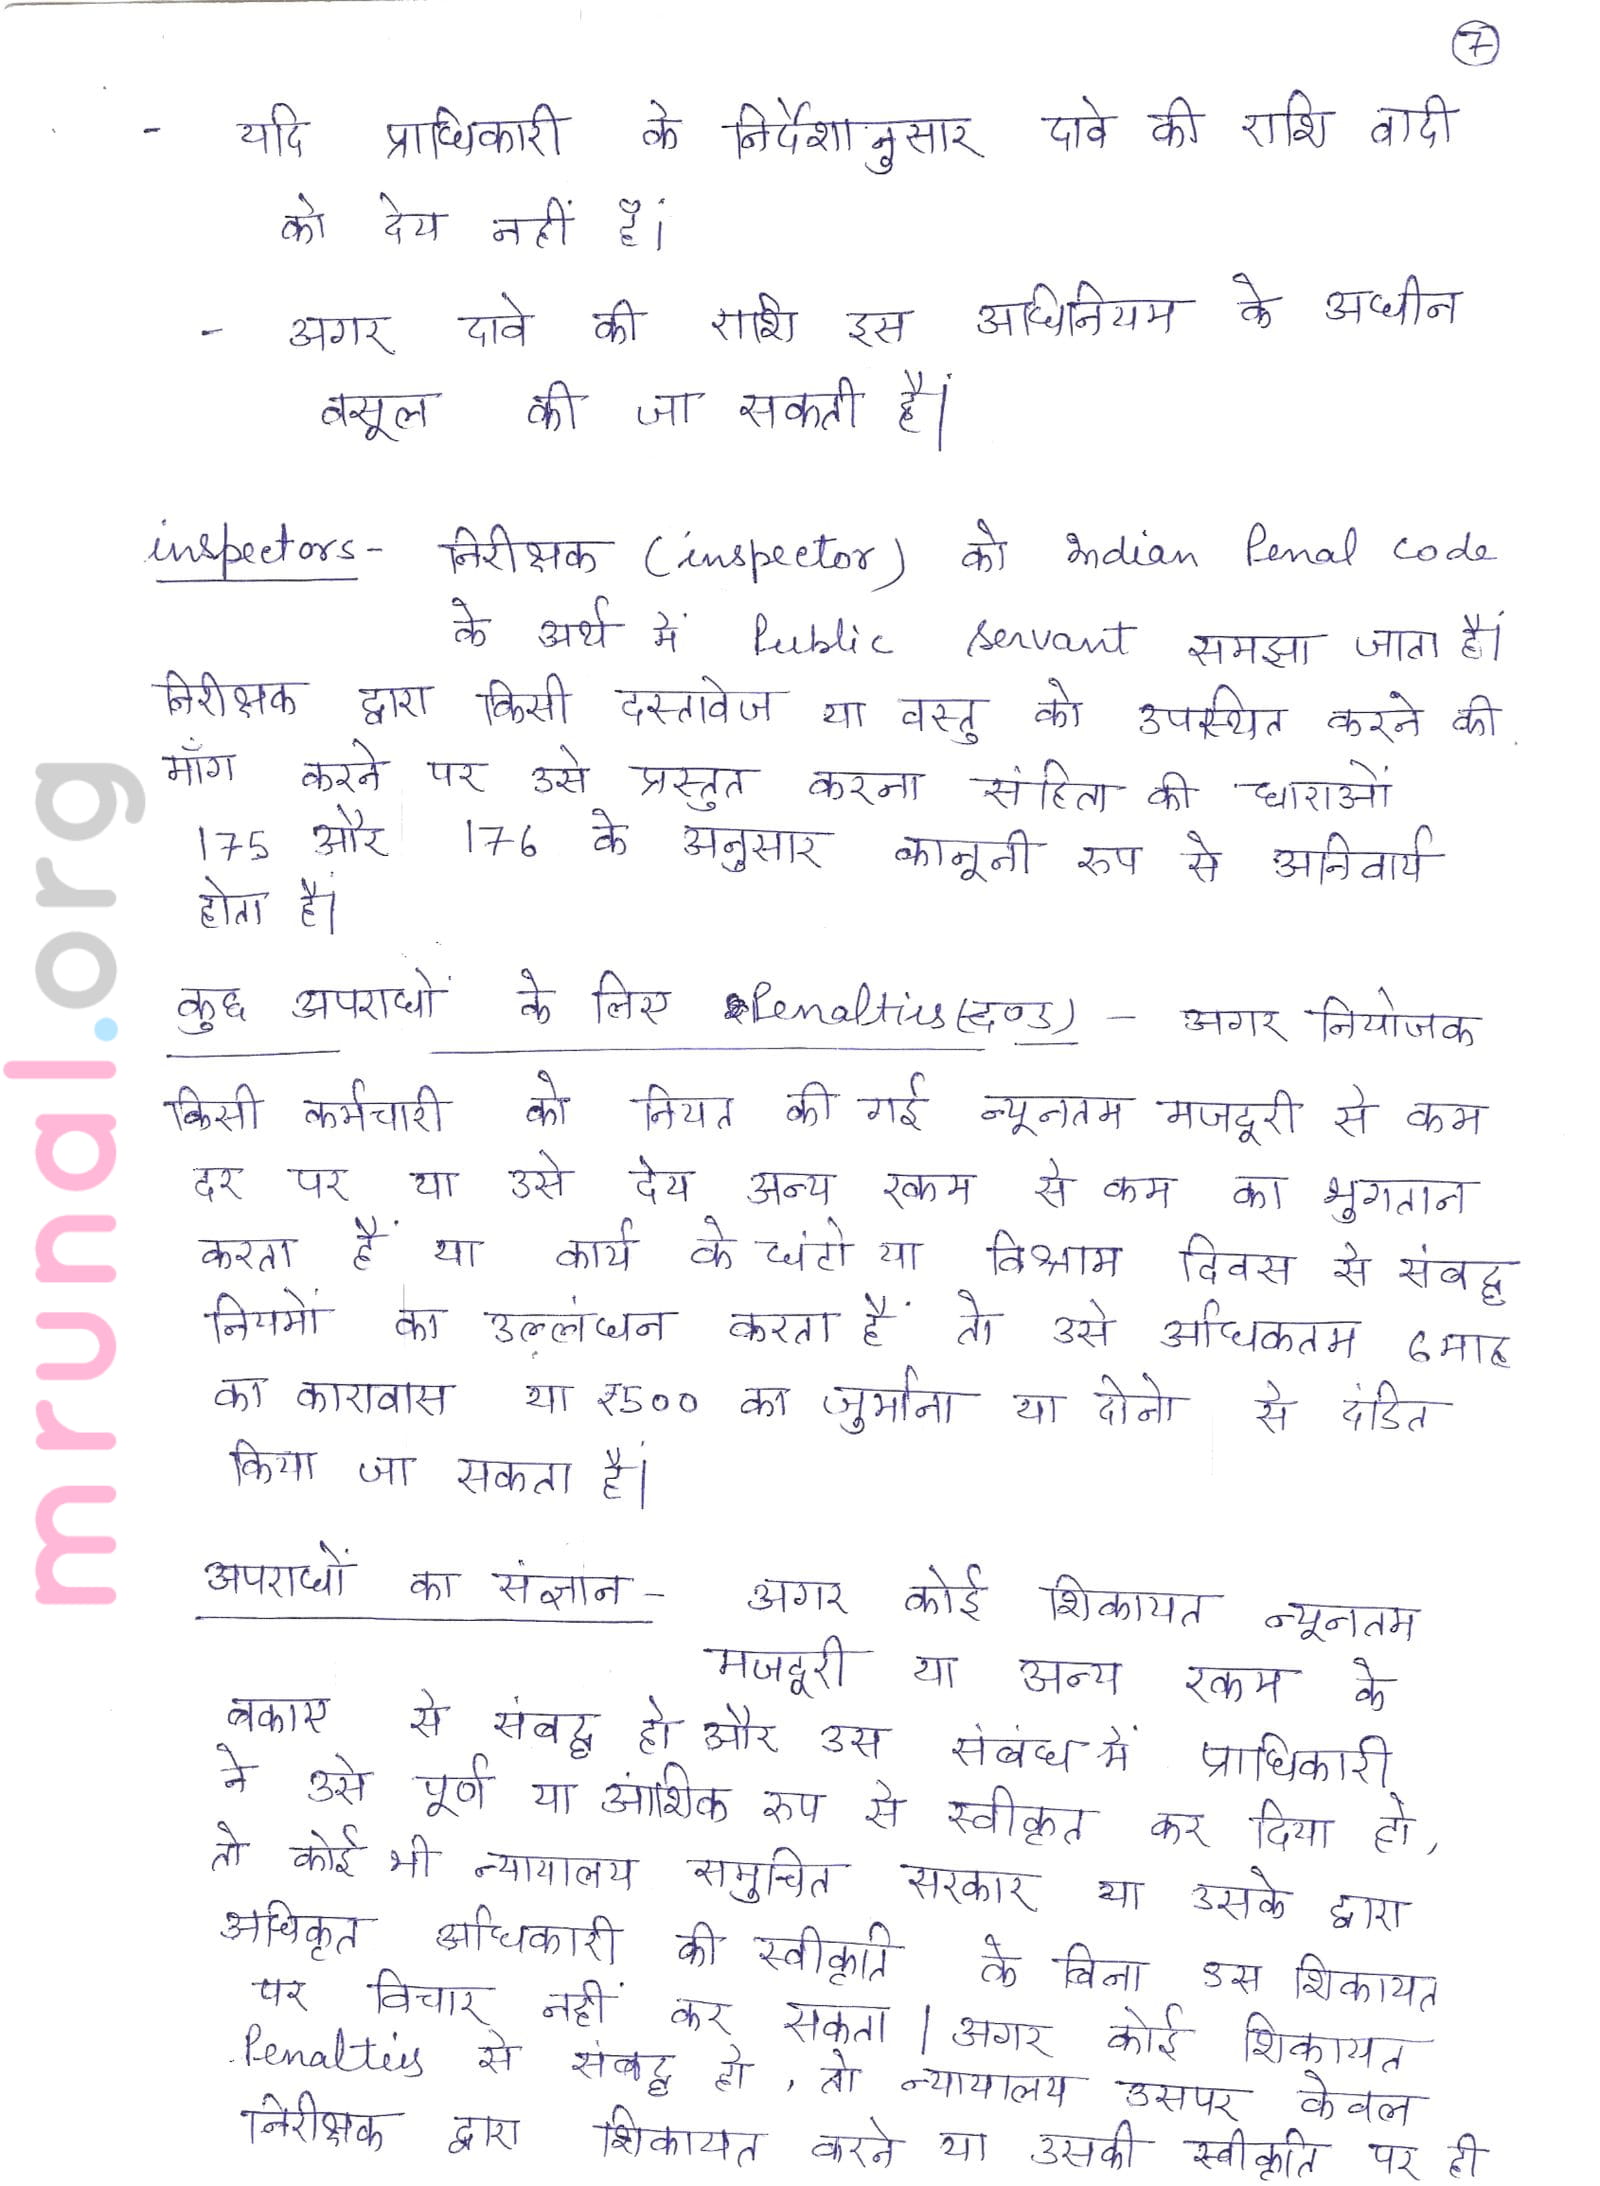 7
- यदि प्राधिकारी के निर्देशानुसार दावे की राशि वादी
को देय नहीं हैं।
- अगर दावे की राशि इस अधिनियम के अधीन
वसूल की जा सकती हैं।
inspectors - निरीक्षक (inspector) को Indian Penal code
के अर्थ में Public servant समझा जाता हैं।
निरीक्षक द्वारा किसी दस्तावेज या वस्तु को उपस्थित करने की
माँग करने पर उसे प्रस्तुत करना संहिता की धाराओं
175 और 176 के अनुसार कानूनी रूप से अनिवार्य
होता हैं।
कुछ अपराधों के लिए Penalties (दण्ड) - अगर नियोजक
किसी कर्मचारी को नियत की गई न्यूनतम मजदूरी से कम
दर पर या उसे देय अन्य रकम से कम का भुगतान
करता हैं या कार्य के घंटो या विश्राम दिवस से संबद्ध
नियमों का उल्लंघन करता हैं तो उसे अधिकतम 6 माह
का कारावास या ₹500 का जुर्माना या दोनो से दंडित
किया जा सकता हैं।
अपराधों का संज्ञान - अगर कोई शिकायत न्यूनतम
मजदूरी या अन्य रकम के
बकाए से संबद्ध हो और उस संबंध में प्राधिकारी
ने उसे पूर्ण या आंशिक रूप से स्वीकृत कर दिया हो,
तो कोई भी न्यायालय समुचित सरकार या उसके द्वारा
अधिकृत अधिकारी की स्वीकृति के बिना उस शिकायत
पर विचार नहीं कर सकता। अगर कोई शिकायत
Penalties से संबद्ध हो, तो न्यायालय उसपर केवल
निरीक्षक द्वारा शिकायत करने या उसकी स्वीकृति पर ही
mrunal.org